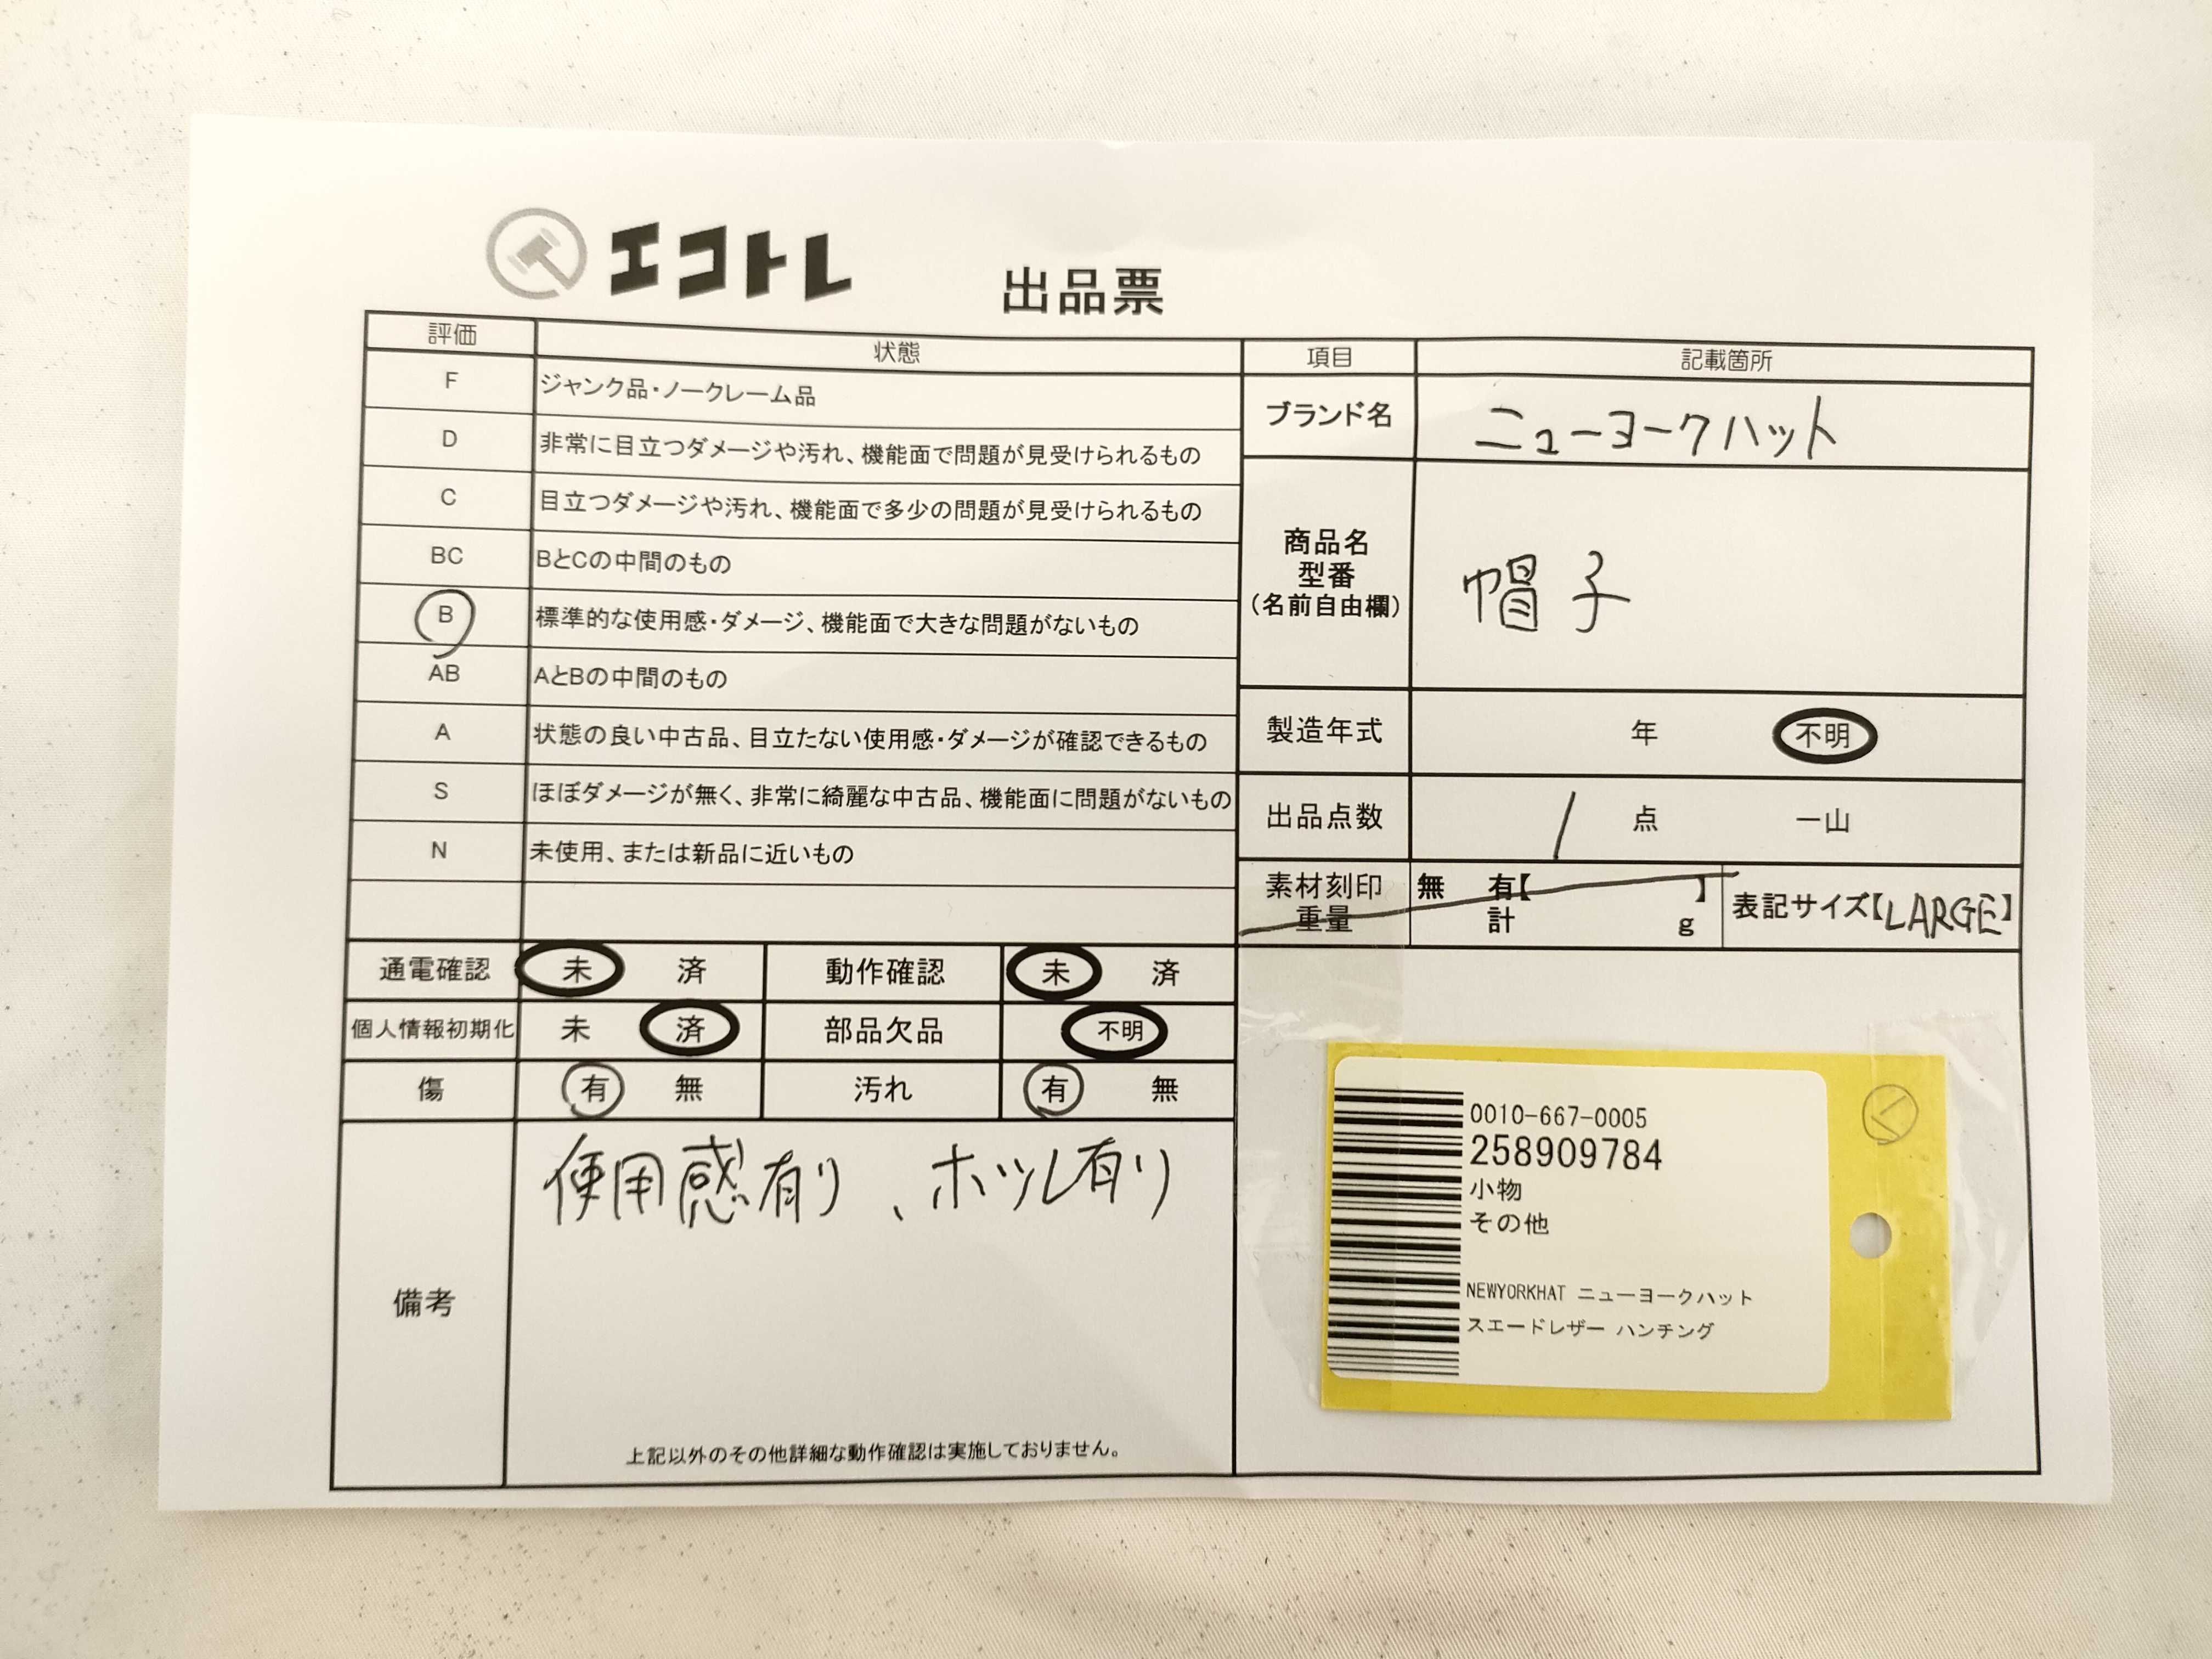 エコトレ
出品票
評価 状態
F ジャンク品・ノークレーム品
D 非常に目立つダメージや汚れ、機能面で問題が見受けられるもの
C 目立つダメージや汚れ、機能面で多少の問題が見受けられるもの
BC BとCの中間のもの
B 標準的な使用感・ダメージ、機能面で大きな問題がないもの
AB AとBの中間のもの
A 状態の良い中古品、目立たない使用感・ダメージが確認できるもの
S ほぼダメージが無く、非常に綺麗な中古品、機能面に問題がないもの
N 未使用、または新品に近いもの
通電確認 未 済 動作確認 未 済
個人情報初期化 未 済 部品欠品 不明
傷 有 無 汚れ 有 無
備考
使用感有り、ホツレ有り
上記以外のその他詳細な動作確認は実施しておりません。
項目 記載箇所
ブランド名 ニューヨークハット
商品名
型番
(名前自由欄)
帽子
製造年式 年 不明
出品点数 1 点 一山
素材刻印 無 有【 】
重量 計 g
表記サイズ【LARGE】
0010-667-0005
258909784
小物
その他
NEWYORKHAT ニューヨークハット
スエードレザー ハンチング